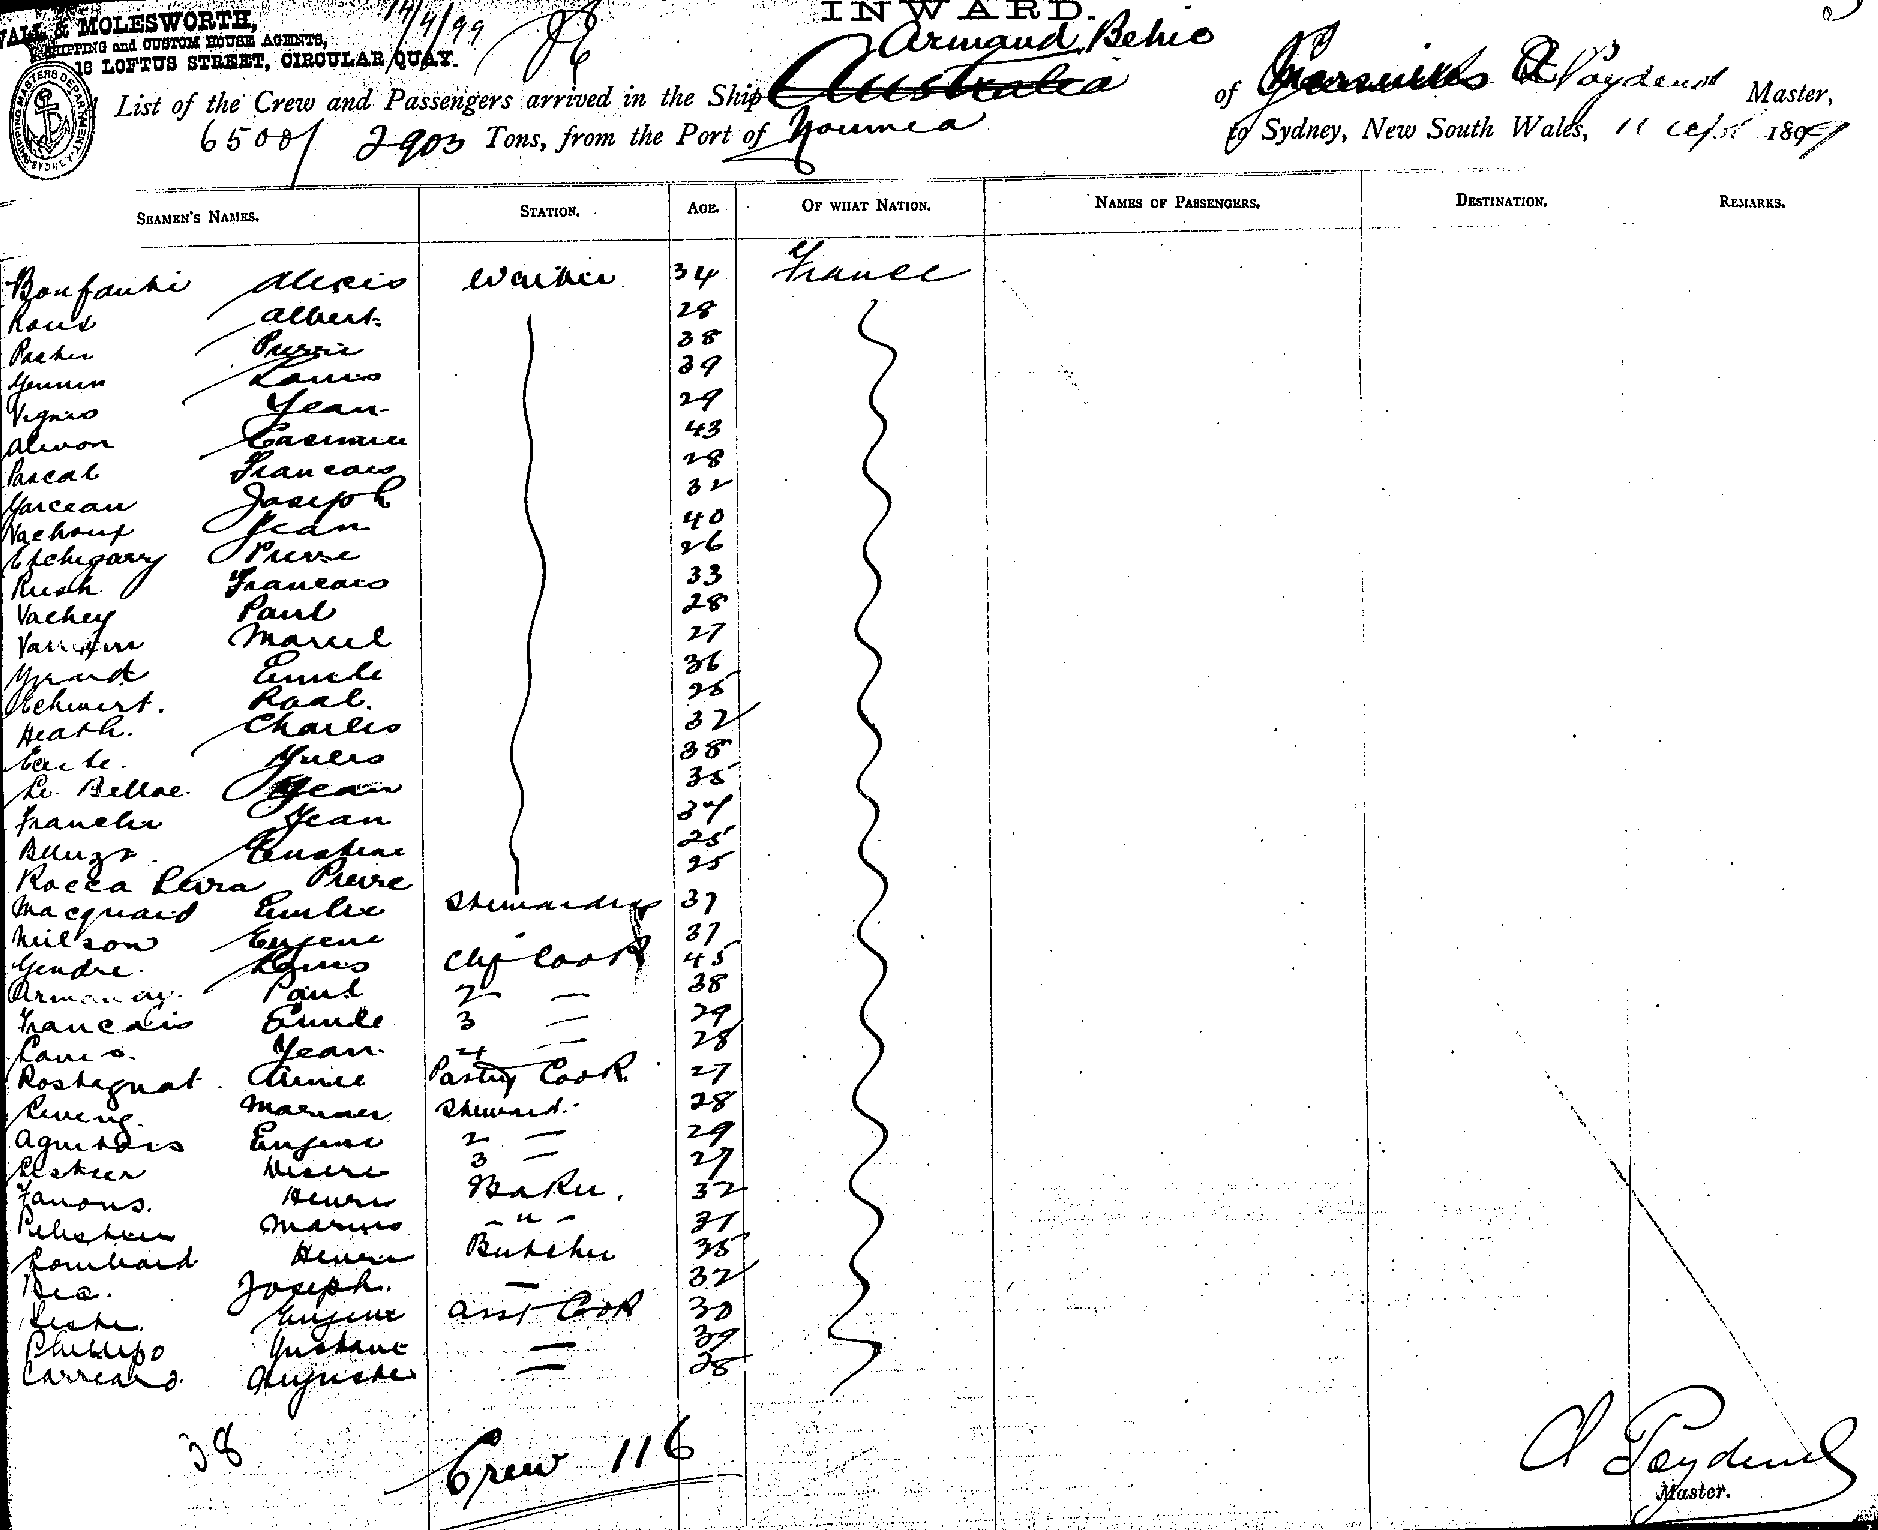 14/4/99
INWARD.
WALL & MOLESWORTH,
SHIPPING and CUSTOM HOUSE AGENTS,
18 LOFTUS STREET, CIRCULAR QUAY.
Armand Behic
List of the Crew and Passengers arrived in the Ship Australia of Poydenot Master,
6500/ 2903 Tons, from the Port of Noumea to Sydney, New South Wales, 11 1899
SEAMEN'S NAMES. STATION. AGE. OF WHAT NATION. NAMES OF PASSENGERS. DESTINATION. REMARKS.
Bonfanti Alexis Waiter 34 France
Roux Albert 28
Pierre 38
Louis 39
Vignes Jean 29
Casimir 43
Pascal Francois 28
Garceau Joseph 32
Vachoux Jean 40
Etchegarry Pierre 26
Rush Francois 33
Vachey Paul 28
Marcel 27
Emile 36
Raal. 25
Heath. Charles 32
Jules 38
Le Belloc Jean 35
Franchi Jean 37
25
Rocca Serra Pierre 25
Macquaid Emilie Stewardess 37
Neilson Eugene 37
Gendre. Louis Chf Cook 45
Armand Paul 2 — 38
Francois Emile 3 — 29
Louis. Jean 4 — 28
Rostagnat Aimee Pastry Cook 27
Steward. 28
Eugene 2 — 29
Desire 3 — 27
Fanous. Henri Baker. 32
Marius - " - 31
Lombard Henri Butcher 35
Joseph. — 32
Eugene Asst Cook 30
Phillipo Gustave — 39
Auguste — 28
38
Crew 116
A Poydenot
Master.